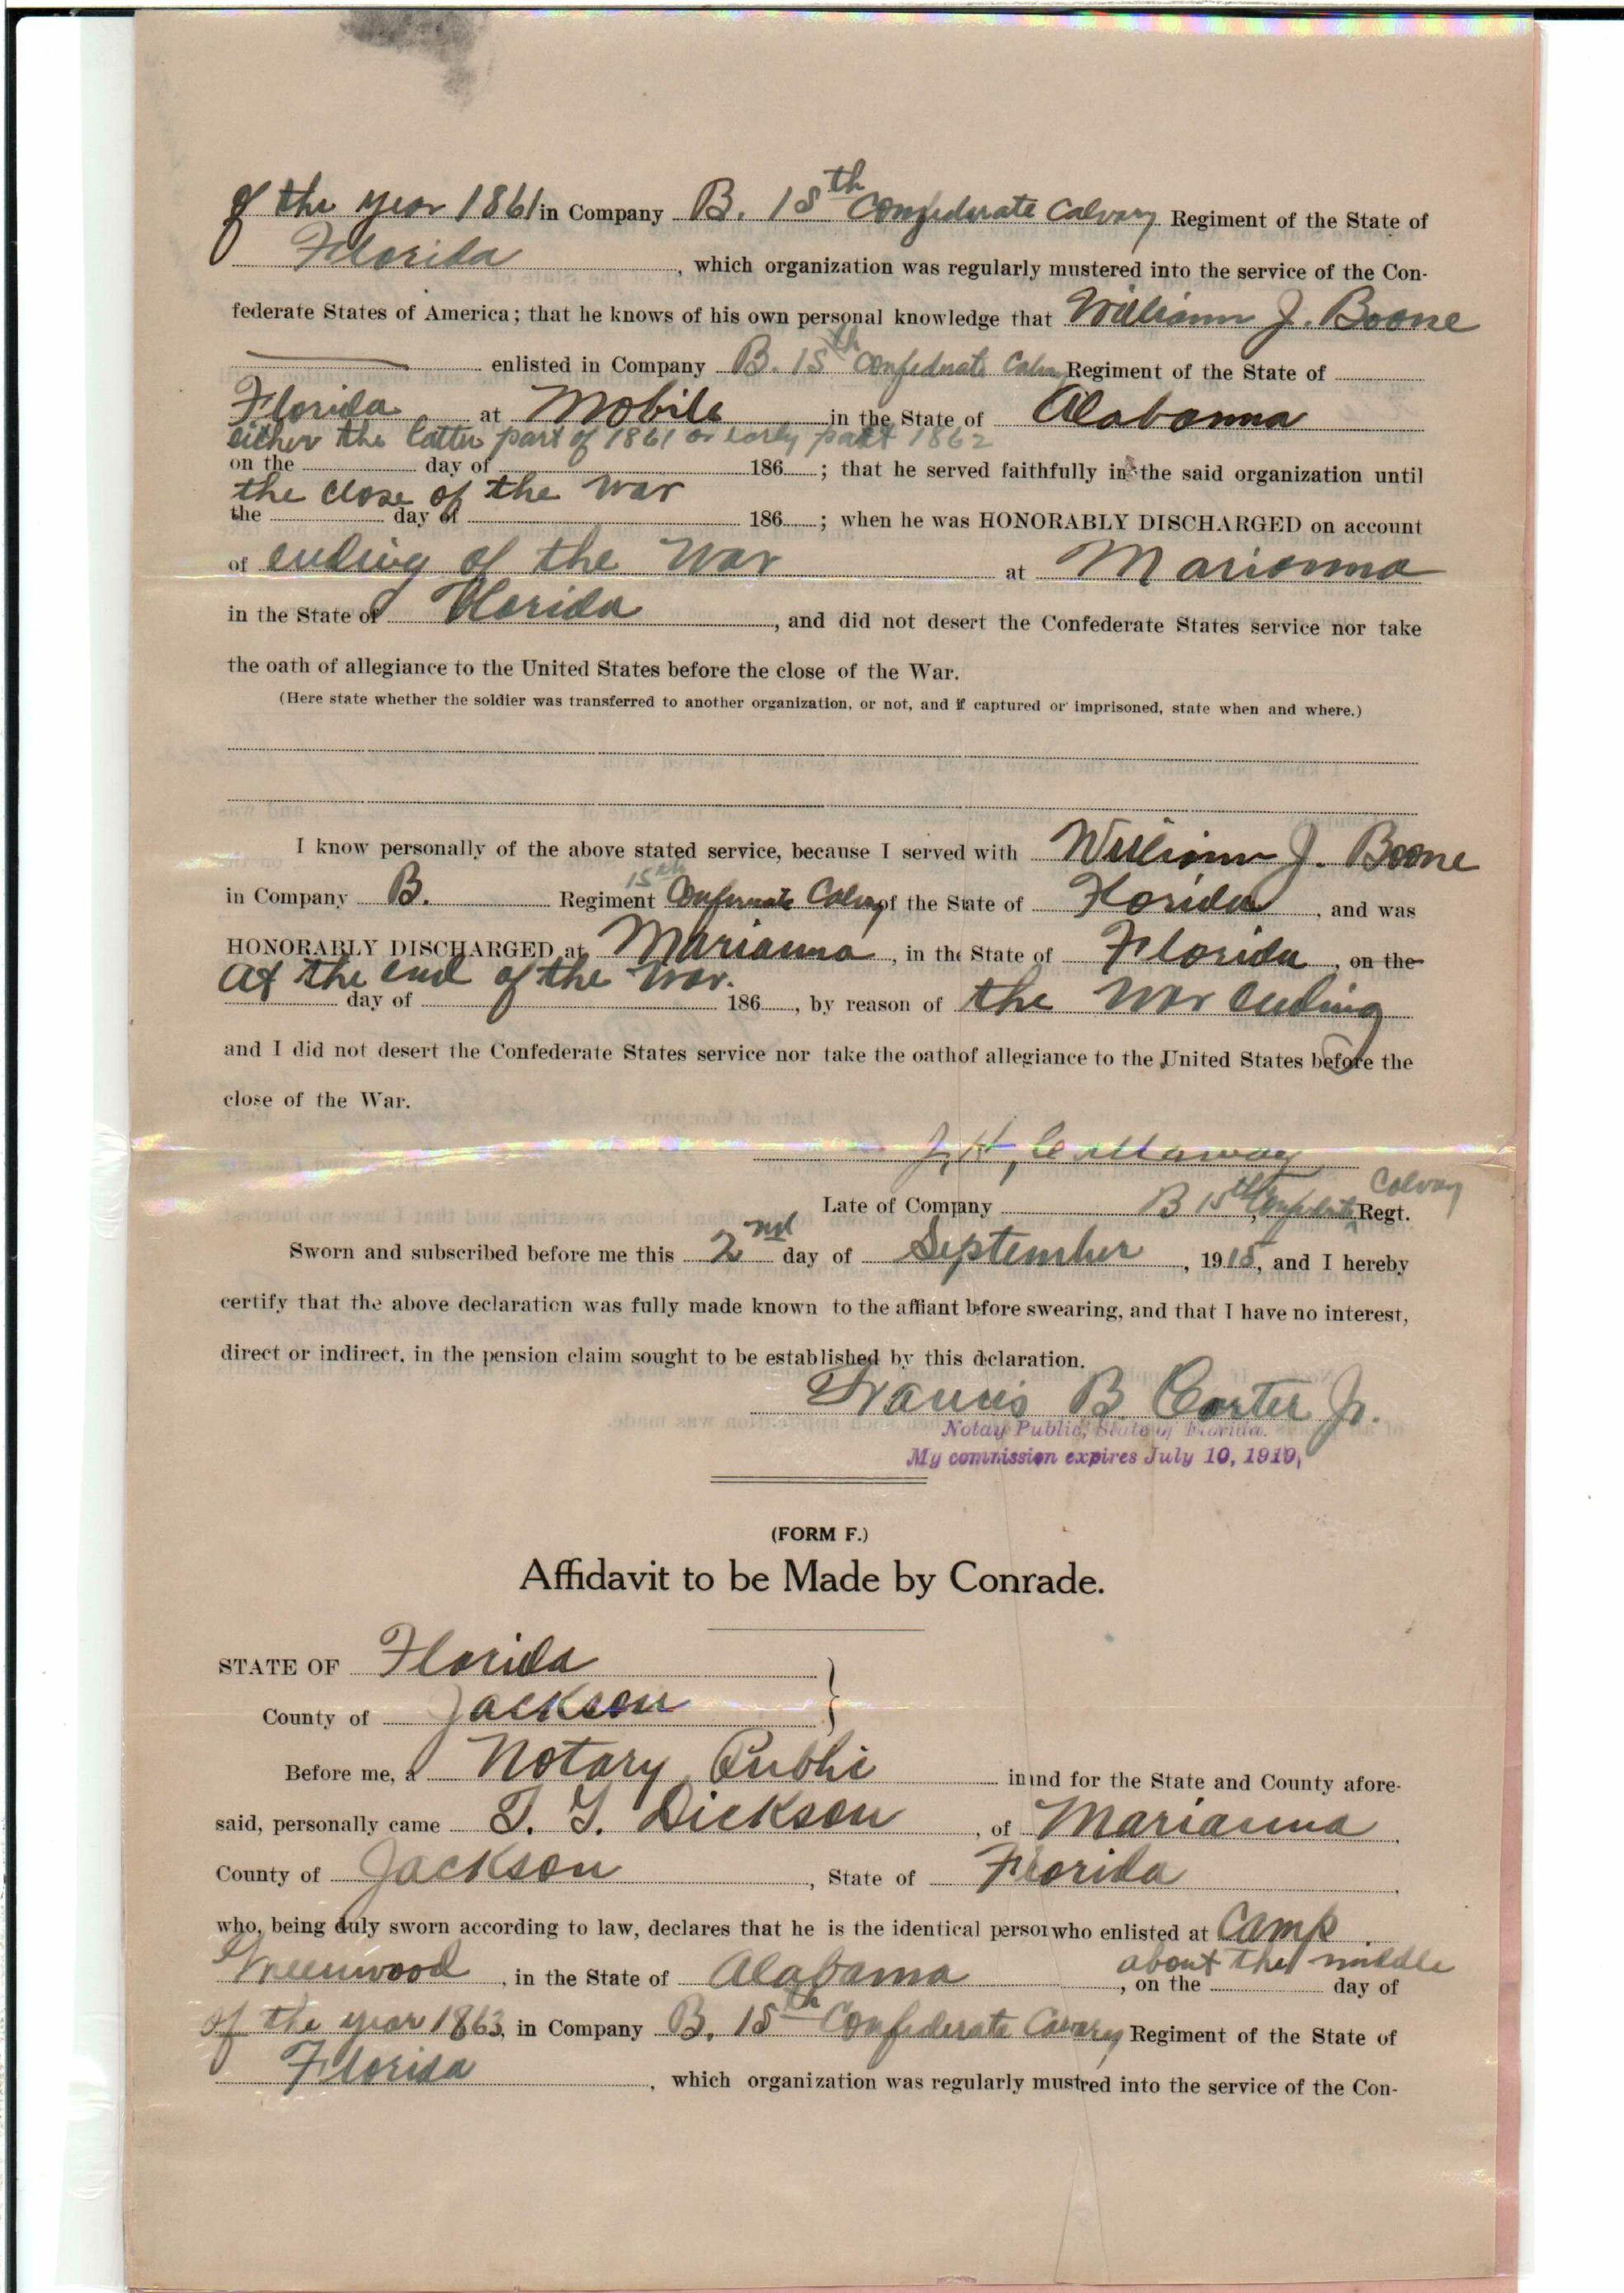 of the year 1861 in Company B. 15th Confederate Calvary Regiment of the State of
Florida, which organization was regularly mustered into the service of the Con-
federate States of America; that he knows of his own personal knowledge that William J. Boone
enlisted in Company B. 15th Confederate Calv Regiment of the State of
Florida at Mobile in the State of Alabama
either the latter part of 1861 or early part 1862
on the day of 186 ; that he served faithfully in the said organization until
the close of the war
the day of 186 ; when he was HONORABLY DISCHARGED on account
of ending of the war at Marianna
in the State of Florida, and did not desert the Confederate States service nor take
the oath of allegiance to the United States before the close of the War.
(Here state whether the soldier was transferred to another organization, or not, and if captured or imprisoned, state when and where.)
I know personally of the above stated service, because I served with William J. Boone
in Company B. Regiment 15th Confederate Calvary of the State of Florida, and was
HONORABLY DISCHARGED at Marianna, in the State of Florida, on the
At the end of the war.
day of 186 , by reason of the war ending
and I did not desert the Confederate States service nor take the oathof allegiance to the United States before the
close of the War.
J. H. Callaway
Late of Company B 15th Confederate Calvary Regt.
Sworn and subscribed before me this 2nd day of September, 1915, and I hereby
certify that the above declaration was fully made known to the affiant before swearing, and that I have no interest,
direct or indirect, in the pension claim sought to be established by this dclaration.
Francis B. Carter Jr.
Notay Public, State of Florida.
My commission expires July 10, 1919,
(FORM F.)
Affidavit to be Made by Conrade.
STATE OF Florida
County of Jackson
Before me, a Notary Public in and for the State and County afore-
said, personally came T. Y. Dickson, of Marianna
County of Jackson, State of Florida
who, being duly sworn according to law, declares that he is the identical person who enlisted at Camp
Greenwood, in the State of Alabama, on the about the middle day of
of the year 1863, in Company B. 15th Confederate Cavary Regiment of the State of
Florida, which organization was regularly mustred into the service of the Con-